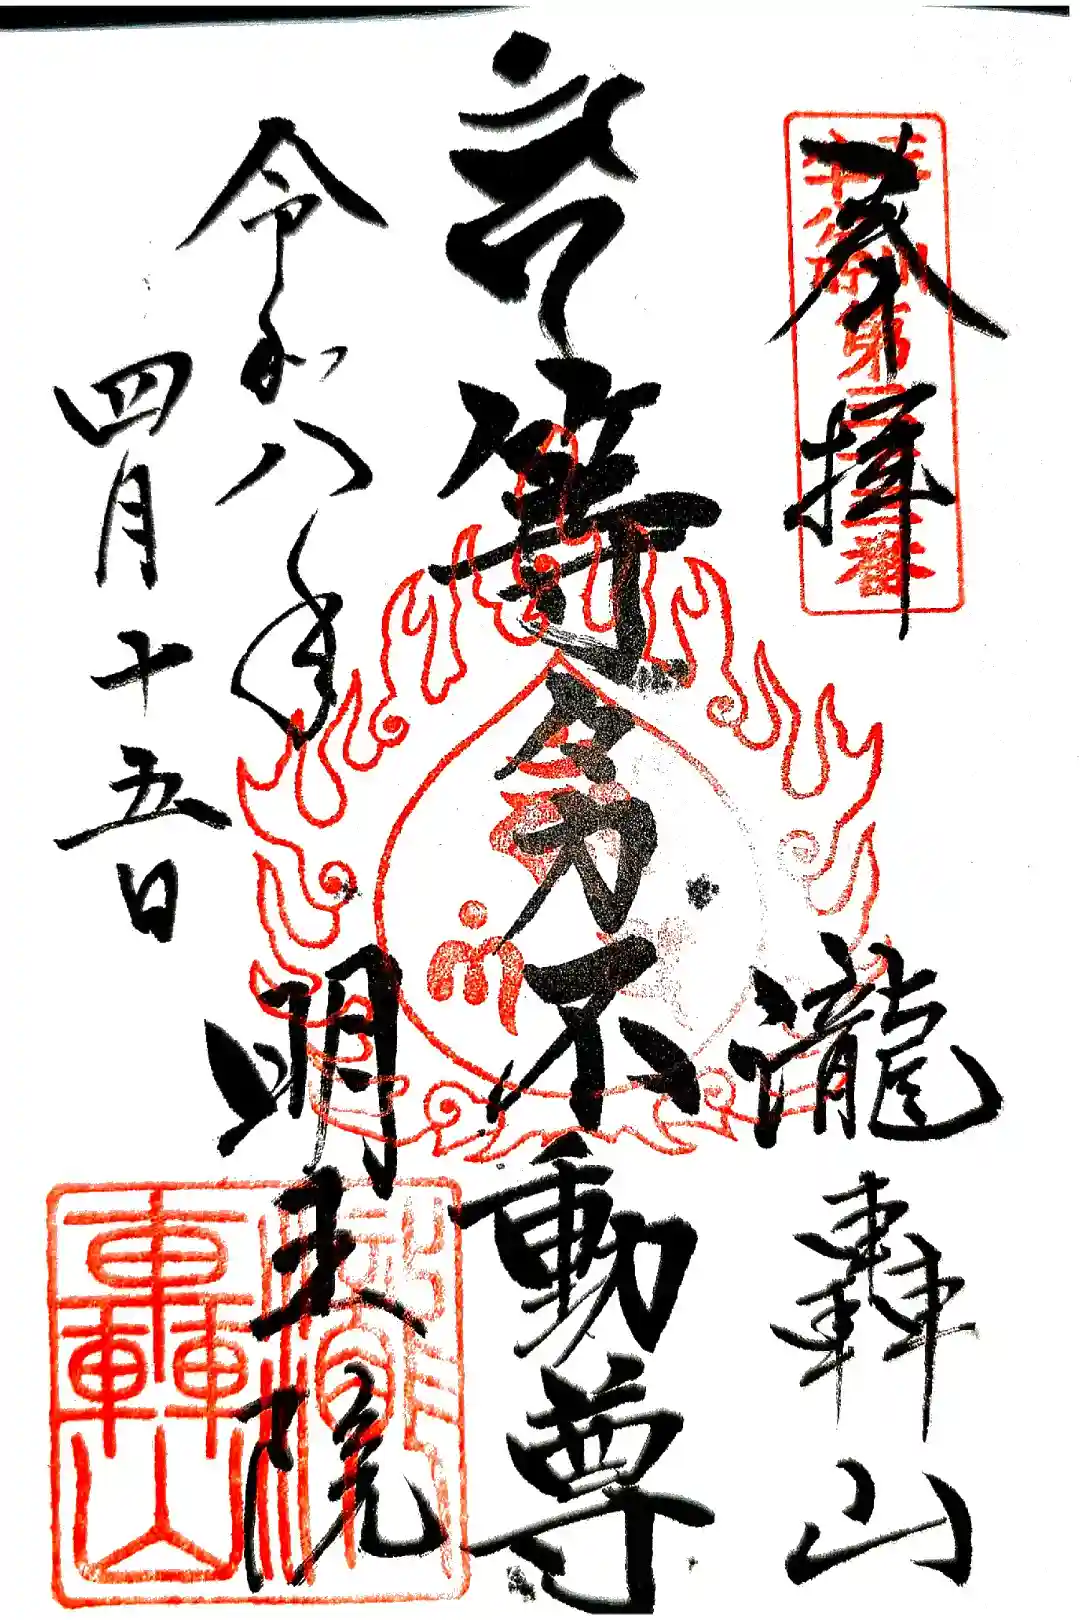 奉拝
瀧轟山
等々力不動尊
明王院
令和八年
四月十五日
瀧轟山